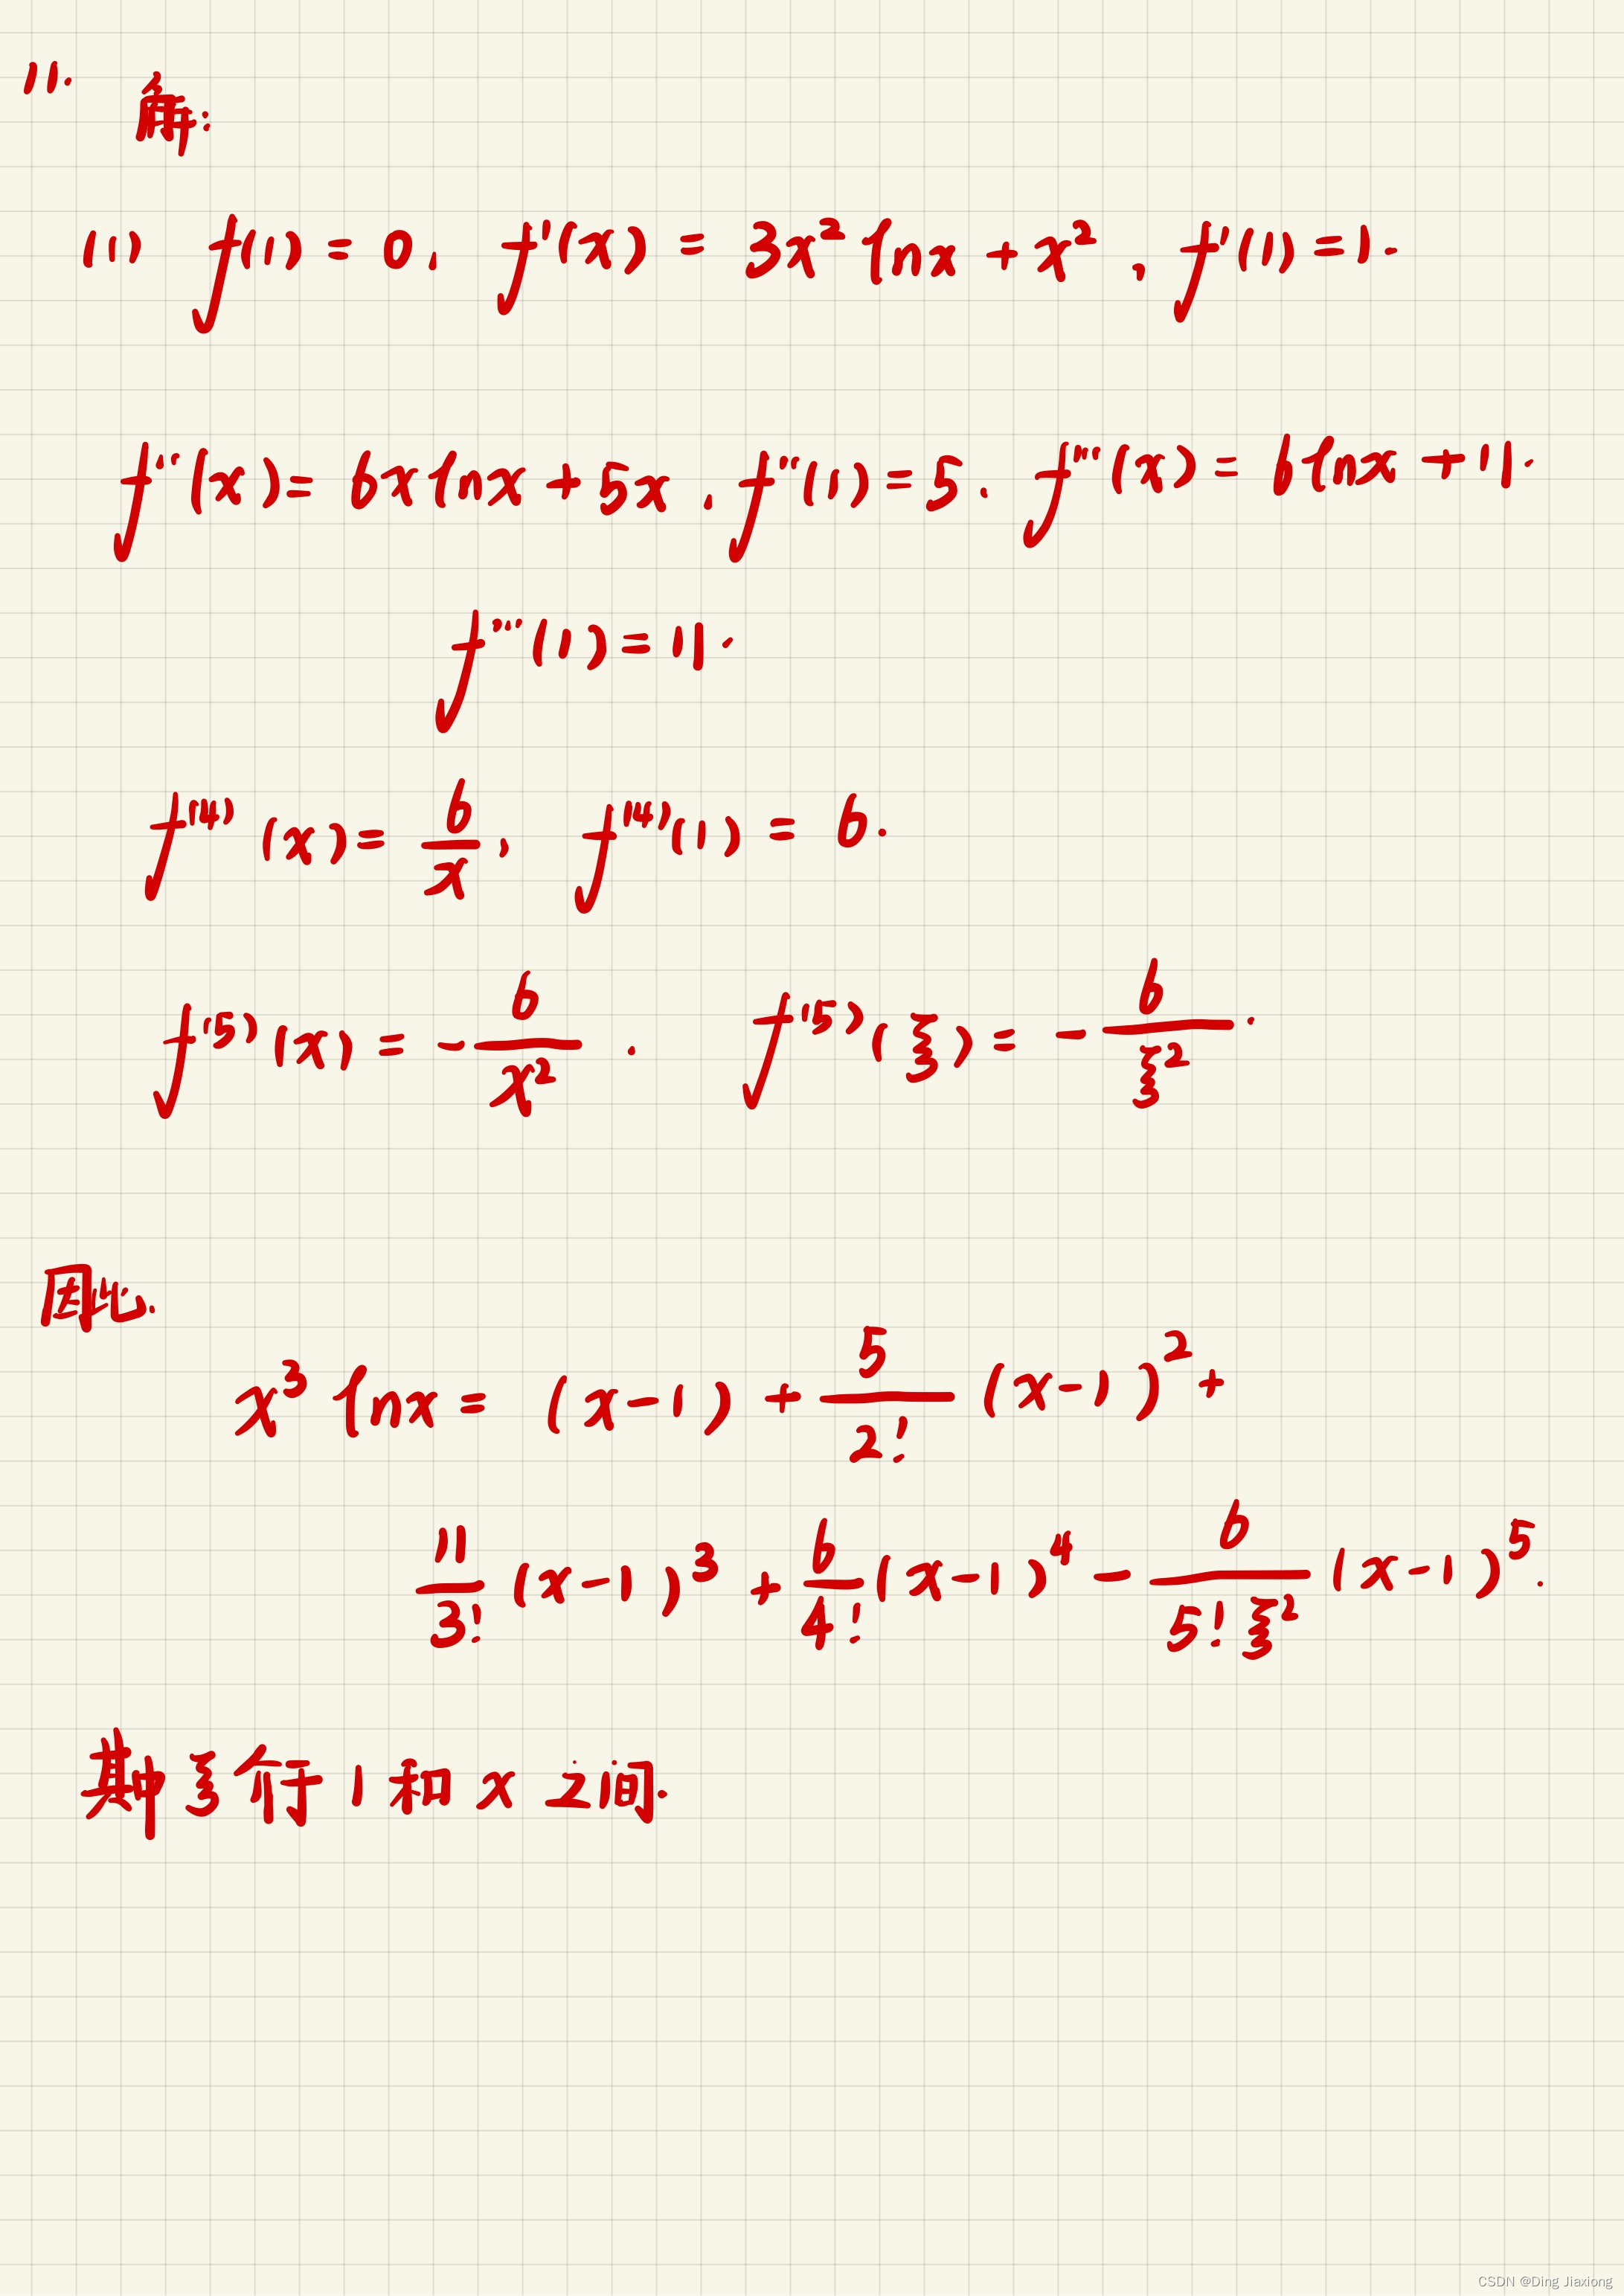 11. 解:
(1) f(1) = 0, f'(x) = 3x² lnx + x², f'(1) = 1.
f''(x) = 6x lnx + 5x, f''(1) = 5. f'''(x) = 6lnx + 11.
f'''(1) = 11.
f⁽⁴⁾(x) = 6/x, f⁽⁴⁾(1) = 6.
f⁽⁵⁾(x) = -6/x². f⁽⁵⁾(ξ) = -6/ξ².
因此.
x³ lnx = (x-1) + 5/2! (x-1)² +
11/3! (x-1)³ + 6/4! (x-1)⁴ - 6/(5! ξ²) (x-1)⁵.
其中 ξ 介于 1 和 x 之间.
CSDN @Ding Jiaxiong